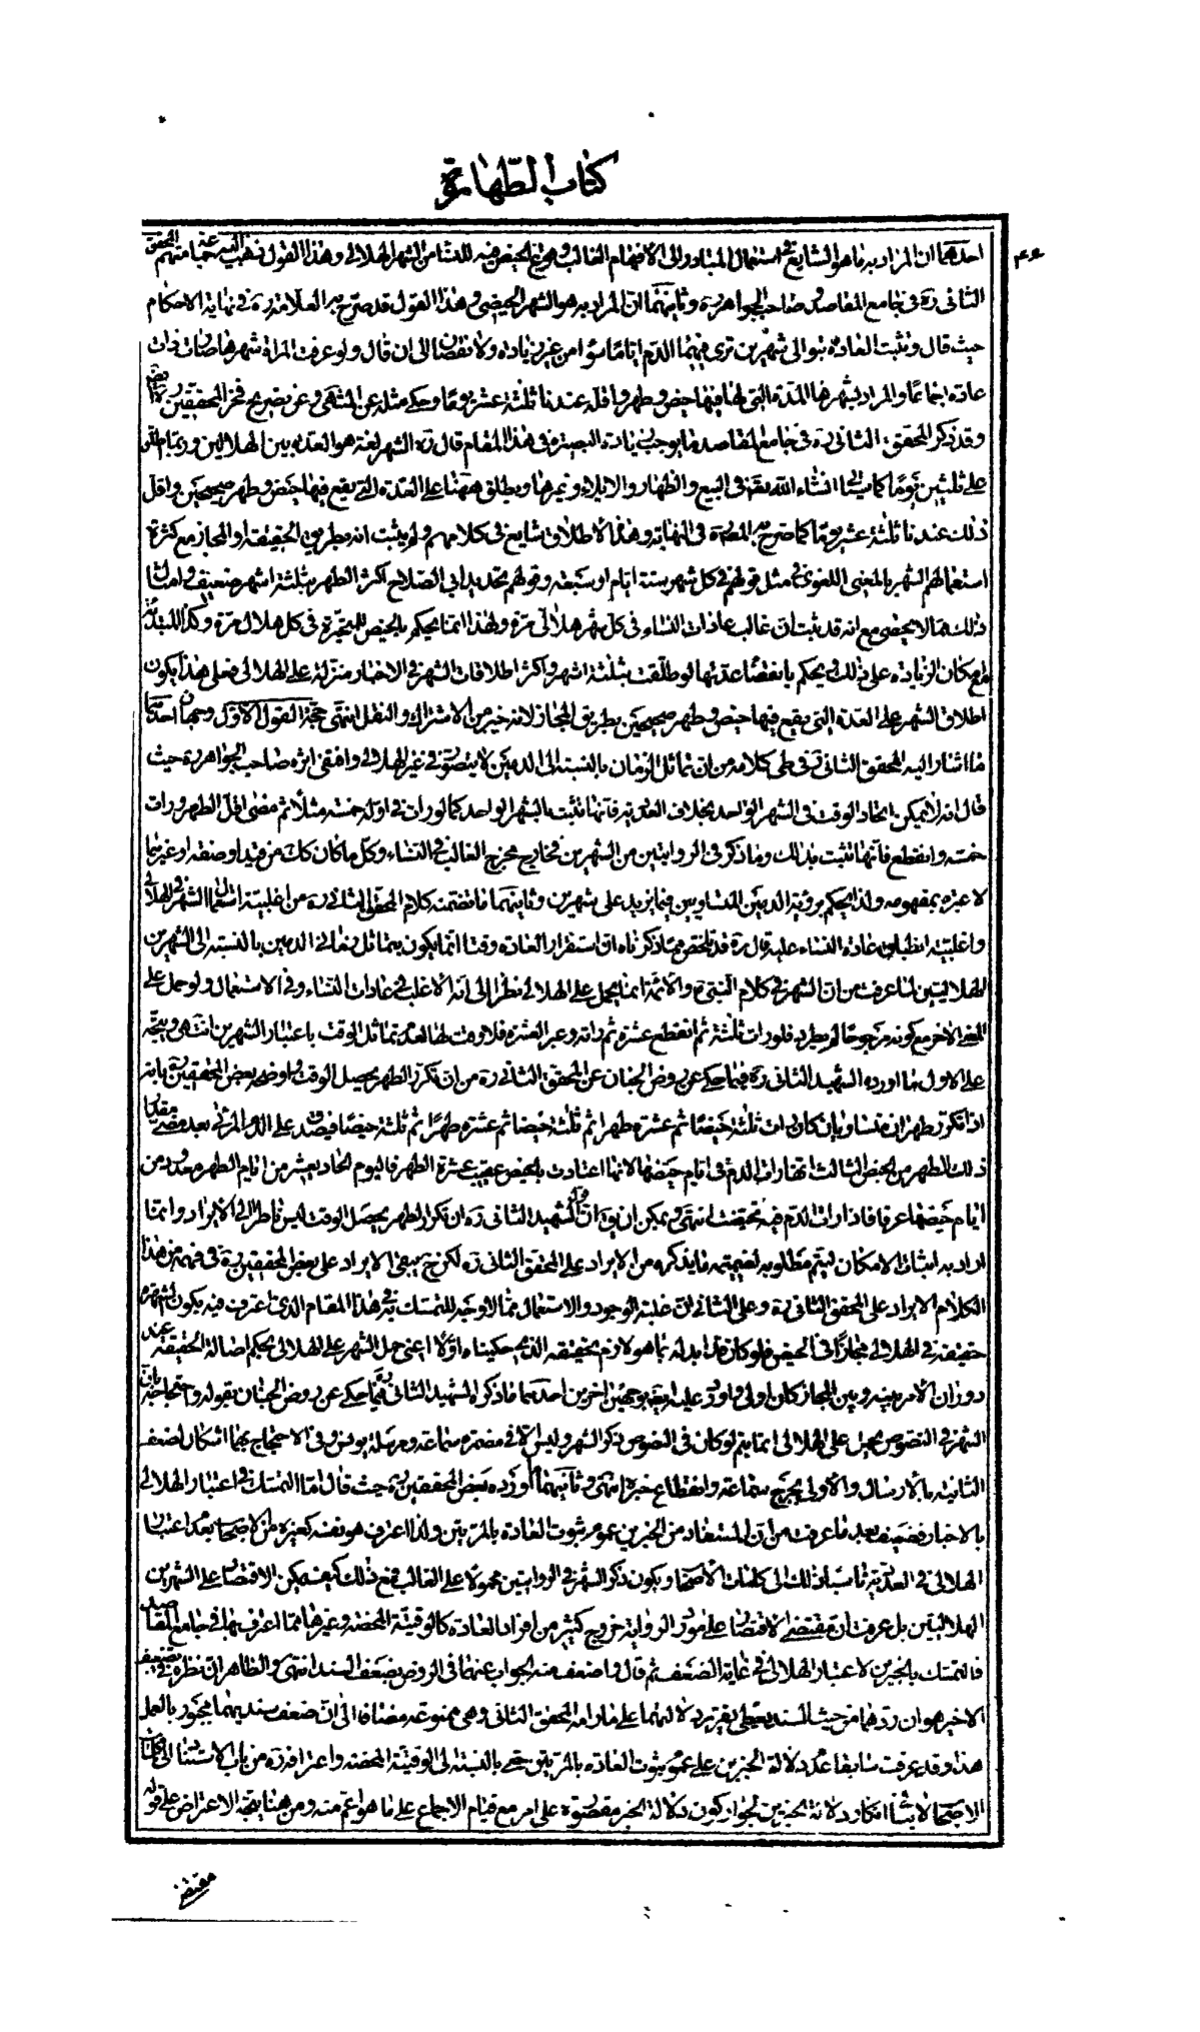 كتاب الطهارة
احدهما ان المراد به ما هو الشايع فى استعمال المتبادر الى الافهام الغالب فى وقوع الحيض فيه للنساء من الشهر الهلالى وهذا القول ذهب اليه جماعة منهم المحقق
الثانى ره فى جامع المقاصد وصاحب الجواهر ره وثانيهما ان المراد به هو الشهر الحيضى وهذا القول قد صرّح به العلامة ره فى نهاية الاحكام
حيث قال وتثبت العادة بتوالى شهرين ترى فيهما الدم ايّاما سواء من غير زيادة ولا نقصان الى ان قال ولو عرفت المراة شهرها صارت ذات
عادة اجماعا والمراد بشهرها المدّة التى لها فيها حيض وطهر واقله عندنا ثلثة عشر يوما وحكى مثله عن المنتهى وعن تصريح فخر المحققين ره ايضا
وقد ذكر المحقق الثانى ره فى جامع المقاصد ما يوجب زيادة البصيرة فى هذا المقام قال ره الشهر لغة هو العدة بين الهلالين
على ثلثين يوما كما سياتى انشاء الله تعالى فى البيع والظهار والايلاء وغيرها ويطلق ههنا على العدّة التى يقع فيها حيض وطهر صحيحين واقل
ذلك عندنا ثلثة عشر يوما كما صرح به المصنف ره فى النهاية وهذا الاطلاق شايع فى كلامهم ولم يثبت انه بطريق الحقيقة او المجاز مع كثرة
استعمالهم الشهر بالمعنى اللغوى فى مثل قولهم فى كل شهر ستة ايام او سبعة وقولهم تحديد ابى الصلاح اكثر الطهر بثلثة اشهر ضعيف وامثال
ذلك مما لا يحصى مع انه قد ثبت ان غالب عادات النساء فى كل شهر هلالى مرة ولهذا انما يحكم بالحيض للمتحيرة فى كل هلال مرة وكذا المبتدئة
مع امكان الزيادة على ذلك ويحكم بانقضاء عدتها لو طلّقت بثلثة اشهر واكثر اطلاقات الشهر فى الاخبار منزلة على الهلالى فعلى هذا يكون
اطلاق الشهر على العدة التى يقع فيها حيض وطهر صحيحين بطريق المجاز لانه خير من الاشتراك والنقل انتهى حجة القول الاول وجهان احدهما
ما اشار اليه المحقق الثانى ره فى طى كلامه من ان تماثل الزمان بالنسبة الى الدمين لا يتصور فى غير الهلالى واقتفى اثره صاحب الجواهر ره حيث
قال انه لا يمكن اتحاد الوقت فى الشهر الواحد بخلاف العددية فانها تثبت بالشهر الواحد كما لو رات فى اوله خمسة مثلا ثم مضى اقل الطهر ورات
خمسة وانقطع فانها تثبت بذلك وما ذكر فى الروايتين من الشهرين فخارج مخرج الغالب فى النساء وكل ما كان كك من قيد او صفة او غيرهما
لا عبرة بمفهومه ولذا يحكم برؤية الدمين المتساويين فيما يزيد على شهرين وثانيهما ما تضمنه كلام المحقق الثانى ره من اغلبية استعمال الشهر فى الهلالى
واغلبية انطباق عادة النساء عليه قال ره قد تلخص مما ذكرناه ان استقرار العادة وقتا انما يكون بتماثل زمانى الدمين بالنسبة الى الشهرين
الهلاليين لما عرفت من ان الشهر فى كلام النبى ص والائمة ع انما يحمل على الهلالى نظرا الى انه الاغلب فى عادات النساء وفى الاستعمال ولو حمل على
المعنى الاخر مع كونه مرجوحا لم يطرد فلو رات ثلثة ثم انقطع عشرة ثم راته وعبر العشرة فلا وقت لها لعدم تماثل الوقت باعتبار الشهرين انتهى ويتجه
على الاول ما اورده الشهيد الثانى ره فيما حكى عن روض الجنان عن المحقق الثانى ره من ان تكرر الطهر يحصل الوقت واوضحه بعض المحققين ره بانه
اذا تكرر طهران متساويان كان رات ثلثة حيضا ثم عشرة طهرا ثم ثلثة حيضا ثم عشرة طهرا ثم ثلثة حيضا فيصدق على الدم المرئى بعد مضى مقدار
ذلك الطهر من الحيض الثالث انها رات الدم فى ايام حيضها لانها اعتادت بالحيض عقيب عشرة الطهر فاليوم الحادى عشر من ايام الطهر معدود من
ايام حيضها عرفا فاذا رات الدم فيه تحيضت انتهى ويمكن ان يق ان قول الشهيد الثانى ره ان تكرر الطهر يحصل الوقت ليس ناظرا الى الايراد وانما
اراد به اثبات الامكان ليتم مطلوبه بضميمة ما يذكره من الايراد على المحقق الثانى ره لكن ح يبقى الايراد على بعض المحققين ره فى فهمه من هذا
الكلام الايراد على المحقق الثانى ره وعلى الثانى ان غلبة الوجود والاستعمال مما لا وجه للتمسك به فى هذا المقام الذى اعترف فيه بكون الشهر
حقيقة فى الهلالى مجازا فى الحيضى فلو كان قد ابدله بما هو لازم تحقيقه الذى حكيناه اوّلا اعنى حمل الشهر على الهلالى بحكم اصالة الحقيقة عند
دوران الامر بينه وبين المجاز كان اولى واورد عليه ايضا بوجهين اخرين احدهما ما ذكره الشهيد الثانى ره فيما حكى عن روض الجنان بقوله واحتجاجه بان
الشهر فى النصوص يحمل على الهلالى انما يتم لو كان فى النصوص ذكر الشهر وليس الا فى مضمرة سماعة ومرسلة يونس وفى الاحتجاج بهما اشكال لضعف
الثانية بالارسال والاولى بجرح سماعة وانقطاع خبره انتهى وثانيهما ما اورده بعض المحققين ره حيث قال اما التمسك فى اعتبار الهلالى
بالاخبار فضعيف بعد ما عرفت من ان المستفاد من الخبرين عموم ثبوت العادة بالمرتين ولذا اعترف هو نفسه كغيره من الاصحاب بعدم اعتبار
الهلالى فى العددية ناسبا ذلك الى كلمات الاصحاب ويكون ذكر الشهر فى الروايتين محمولا على الغالب فمع ذلك كيف يمكن الاقتصار على الشهرين
الهلاليين بل عرفت ان مقتضى الاقتصار على مورد الرواية خروج كثير من افراد العادة كالوقتية المحضة وغيرها مما اعترف بها فى جامع المقاصد
فالتمسك بالخبرين لاعتبار الهلالى فى غاية الضعف ثم قال واضعف منه الجواب عنهما فى الروض بضعف السند انتهى والظاهر ان نظره فى تضعيف
الاخير هو ان ردهما من حيث السند يعطى تقرير دلالتهما على ما رامه المحقق الثانى وهى ممنوعة مضافا الى ان ضعف سنديهما مجبور بالعمل
هذا وقد عرفت سابقا عدم دلالة الخبرين على عموم ثبوت العادة بالمرتين حتى بالنسبة الى الوقتية المحضة واعترافه ره من باب الاستناد الى كلمات
الاصحاب لا ينافى انكار دلالة الخبرين لجواز كون دلالة الخبر مقصورة على امر مع قيام الاجماع على ما هو اعم منه ومن هنا يتجه الاعتراض على قوله
مقتضى